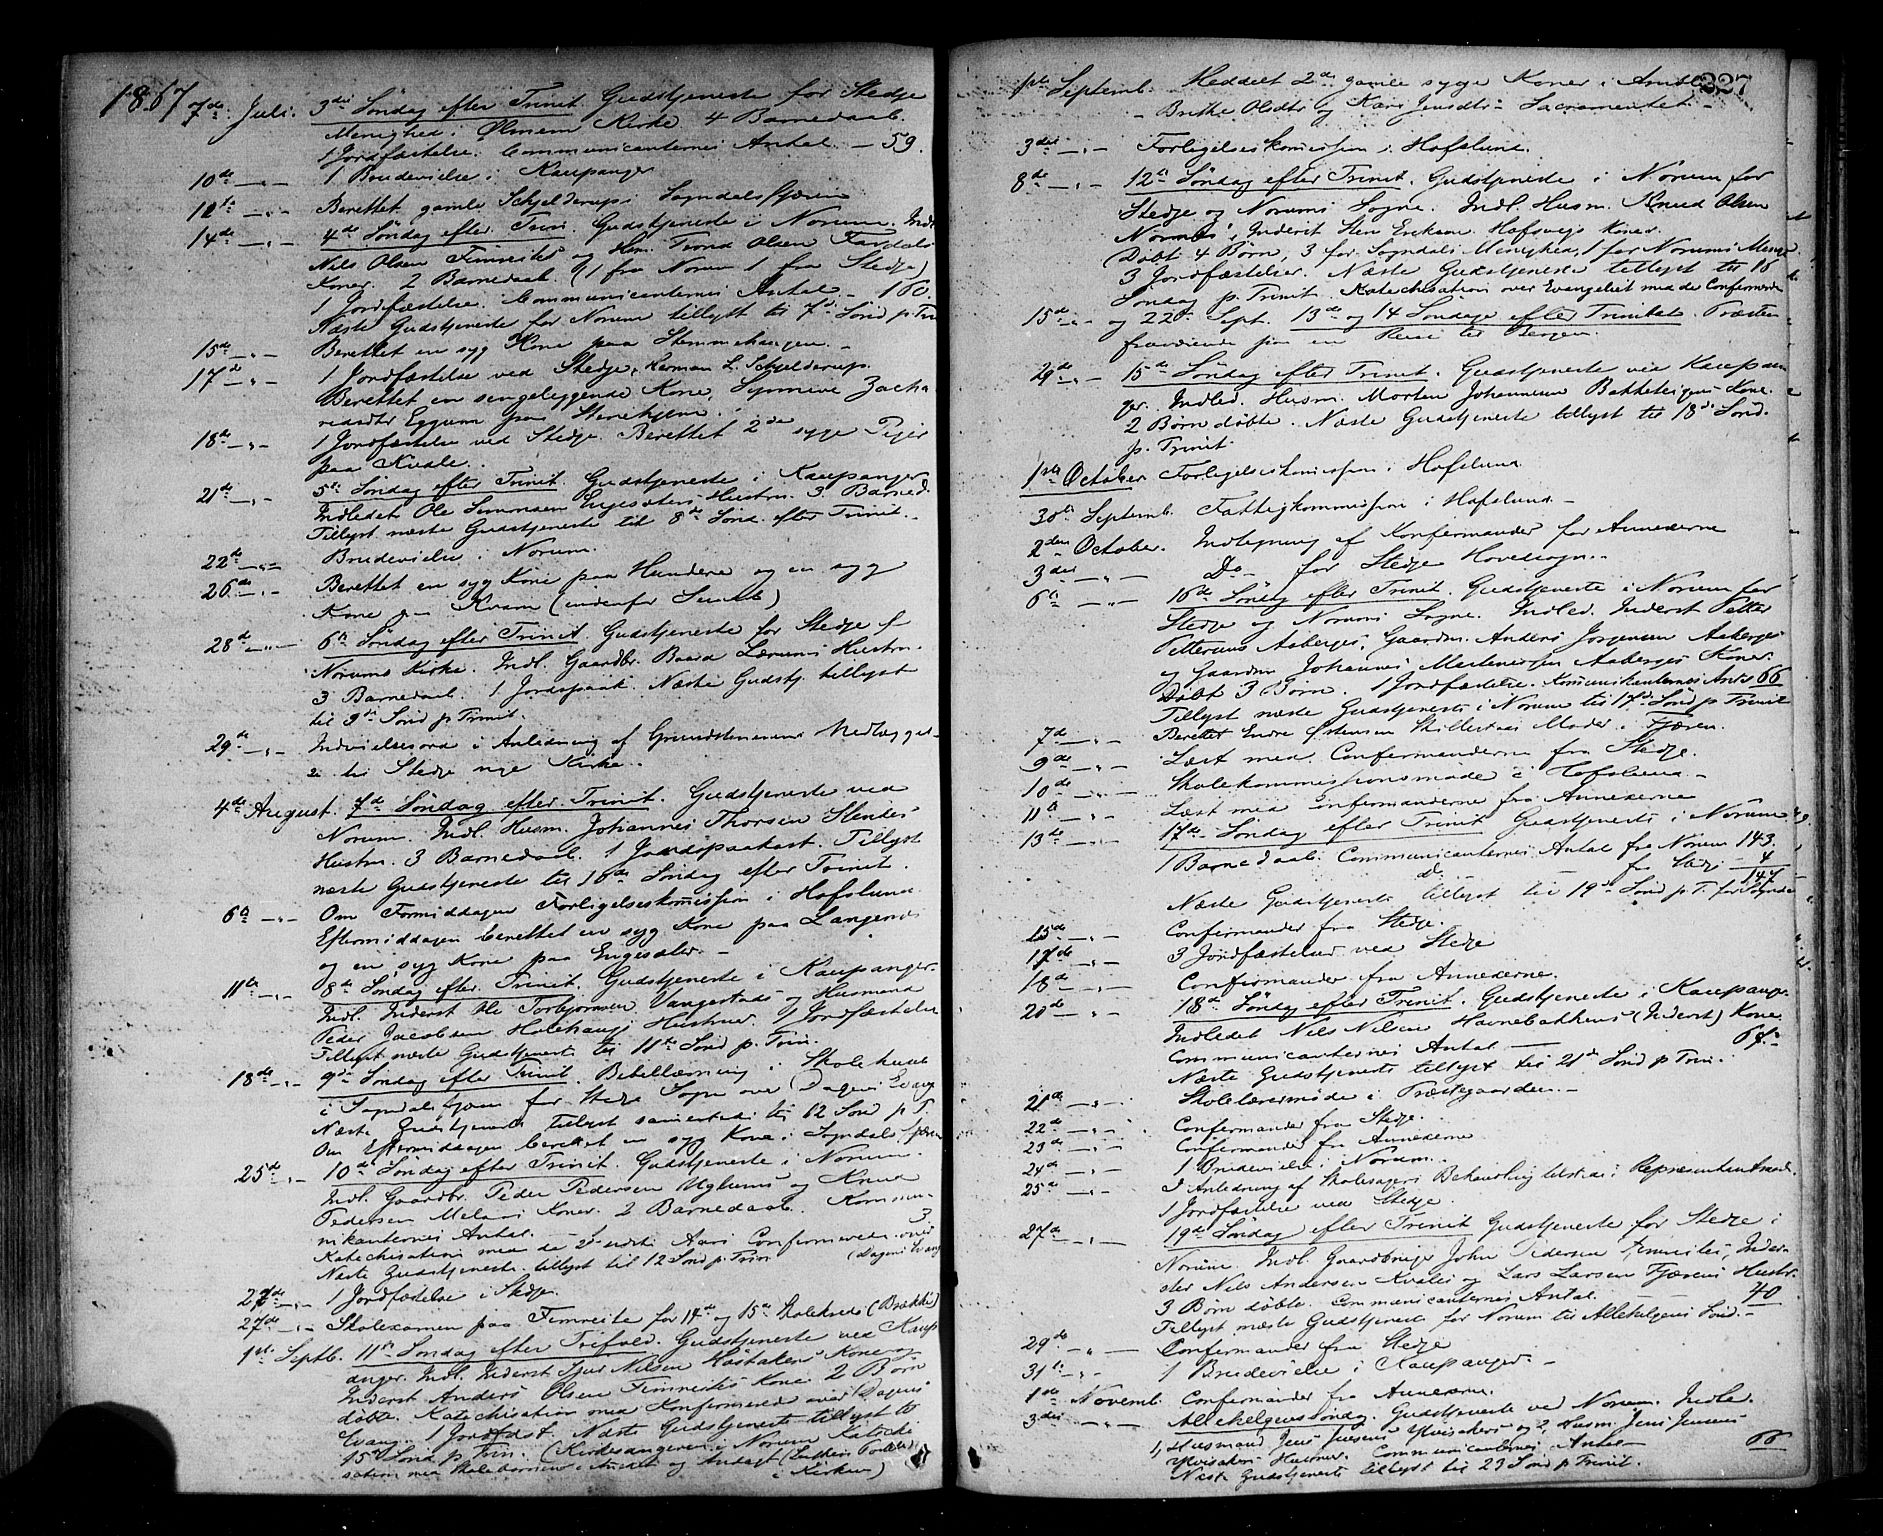 1867 7de Juli. 3die Søndag efter Trinit. Gudstjeneste for Stedje
Menighed i Ølmem Kirke 4 Barnedaab.
1 Jordfæstelse. Communicanternes Antal — 59.
10de —„— 1 Brudevielse i Kaupanger
12te —„— Berettet gamle Schjelderup i Sogndalsfjæren
14de —„— 4de Søndag efter Trin. Gudstjeneste i Norum. Indl
Nils Olsen Fimreites og Hm. Trond Olsen Fardals
Koner. 2 Barnedaab (1 fra Norum 1 fra Stedje)
1 Jordfæstelse. Communicanternes Antal — 160
Næste Gudstjeneste for Norum tillyst til 7de Sønd p Trin
15de —„— Berettet en syg Kone paa Stemmehaugen. —
17de —„— 1 Jordfæstelse ved Stedje, Herman L. Schjelderup.
Berettet en sengeliggende Kone, Synneve Zacha
riasdtr Eggum paa Stenehjem.
18de —„— 1 Jordfæstelse ved Stedje. Berettet 2de syge Piger
paa Kvale.
21de —„— 5te Søndag efter Trinit. Gudstjeneste i Kaupanger
Indledet Ole Simonsen Engesæters Hustru. 3 Barned.
Tillyst næste Gudstjeneste til 8de Sønd. efter Trinit. —
22de —„— Brudevielse i Norum.
26de —„— Berettet en syg Kone paa Hundere og en syg
Kone paa Kvam (indenfor
28de —„— 6te Søndag efter Trinit. Gudstjeneste for Stedje i
Norums Kirke. Indl. Gaardbr. Baard Lærums Hustru.
3 Barnedaab. 1 Jordspaak. Næste Gudstj. tillyst
til 9de Sønd p Trinit.
29de —„— Indvielsesord i Anledning af Grundstenens Nedlæggel-
se til Stedje nye Kirke. —
4de August. 7de Søndag efter Trinit. Gudstjeneste ved
Norum. Indl. Husm. Johannes Thorsen Slendes
Hustru. 3 Barnedaab. 1 Jordspaakast. Tillyst
næste Gudstjeneste til 10de Søndag efter Trinit.
6te —„— Om Formiddagen Forligelseskomission i Hofslund
Eftermiddagen berettet en syg Kone paa
og en syg Kone paa Engesæter. —
11te —„— 8de Søndag efter Trinit. Gudstjeneste i Kaupanger.
Indl. Inderst Ole Torbjørnsen Vangestads og Husmand
Peder Jacobsen Holehaugs Hustruer. 1 Jordfæstelse
Tillyst næste Gudstjeneste til 11te Sønd p. Trin.
18de —„— 9de Søndag efter Trinit. Bibellæsning i Skolehuset
i Sogndalsfjæren for Stedje Sogn over Dagens Evang
Næste Gudstjeneste tillyst sammesteds til 12 Sønd p T.
Om Eftermiddagen berettet en syg Kone i Sogndalsfjæren
25de —„— 10de Søndag efter Trinit. Gudstjeneste i Norum.
Indl. Gaardbr. Peder Pedersen Uglums og Knud
Pedersen Melaas Koner. 2 Barnedaab. Kommu-
nikanternes Antal — 3
Katechisation med de 2 sidste Aars Confirmerede over
Næste Gudstjeneste tillyst til 12 Sønd p. Trin (Dagens Evang
27de —„— 1 Jordfæstelse i Stedje.
27de —„— Skoleexamen paa Fimreite for 14de og 15de Skolekreds
1ste Septb. 11te Søndag efter Trefold. Gudstjeneste ved Kaup
anger. Indl. Inderst Sjur Nilsen Høstakens Kone og
Inderst Anders Olsen Fimreites Kone 2 Børn
døbte. Katechisation med Konfirmerede over Dagens
Evang. 1 Jordfæst. Næste Gudstjeneste tillyst til
15 Sønd p. Trin. (Kirkesangeren i Norum Kateche
sation med Skolebørnene
i Kirken)
327
1ste Septemb. Meddelt 2de gamle syge Koner i
— Brithe Olsdtr og Kari Jensdtr — Sacramentet —
3die —„— Forligelseskomission i Hofslund.
8de —„— 12te Søndag efter Trinit. Gudstjeneste i Norum for
Stedje og Norums Sogne. Indl. Husm. Knud Olsen
Nornes, Inderst Sten Eriksen Hofsvegs Koner.
Døbt 4 Børn, 3 for Sogndals Menighed, 1 for Norums Menig
3 Jordfæstelser. Næste Gudstjeneste tillyst til 16
Søndag p. Trinit. Katechisation over Evangeliet med de Confirmerede
15de —„— og 22de Sept. 13de og 14 Søndage efter Trinitatis. Præsten
fraværende paa en Reise til Bergen.
29de —„— 15de Søndag efter Trinit. Gudstjeneste ved Kaupan
ger. Indled. Husm. Morten Johannesen Bakketeigens Kone.
2 Børn døbte. Næste Gudstjeneste tillyst til 18de Sønd.
p. Trinit
1ste October Forligelseskomission i Hofslund
30te Septemb. Fattigkommission i Hofslund. —
2den October. Indtegning af Konfirmander for Annexerne
3die —„— Do — for Stedje Hovedsogn. —
6te —„— 16de Søndag efter Trinit. Gudstjeneste i Norum for
Stedje og Norums Sogne. Indled. Inderst Petter
Pettersens Aaberges, Gaardm. Anders Jørgensen Aaberges
og Gaardm Johannes Mortensen Aaberges Koner.
Døbt 3 Børn. 1 Jordfæstelse. Kommunikanternes Ant. 66
Tillyst næste Gudstjeneste i Norum til 17de Sønd p Trinit
7de —„— Berettet Endre Østensen Skillestads Moder i Fjæren.
9de —„— Læst med Confirmanderne fra Stedje.
10de —„— Skolekommissionsmøde i Hofslund. —
11te —„— Læst med Confirmanderne fra Annexerne
13de —„— 17de Søndag efter Trinit Gudstjeneste i Norum
1 Barnedaab. Communicanternes Antal fra Norum 143.
do — fra Stedje — 4
147
Næste Gudstjeneste tillyst til 19de Sønd p T. for Sogndal
15de —„— Confirmander fra Stedje.
17de —„— 3 Jordfæstelser ved Stedje
18de —„— Confirmander fra Annexerne.
20de —„— 18de Søndag efter Trinit. Gudstjeneste i Kaupanger.
Indledet Nils Nilsen Havnebakkens (Inderst) Kone
Communicanternes Antal — 68. —
Næste Gudstjeneste tillyst til 21de Sønd p Trin.
21de —„— Skolelærermøde i Præstegaarden. —
22de —„— Confirmander fra Stedje.
23de —„— Confirmander fra Annexerne
24de —„— 1 Brudevielse i Norum. —
25de —„— I Anledning af Skolesagens Behandling tilstede i Repræsentantmøde.
1 Jordfæstelse ved Stedje.
27de —„— 19de Søndag efter Trinit Gudstjeneste for Stedje i
Norum. Indl. Gaardbruger John Pedersen Fimreites, Inder-
ster Nils Andersen Kvales og Lars Larsen Fjærens Hustr.
3 Børn døbte. Communicanternes Antal — 40
Tillyst næste Gudstjeneste for Norum til Allehelgens Sønd. —
29de —„— Confirmander fra Stedje
31te —„— 1 Brudevielse i Kaupanger. —
1ste Novemb. Confirmander fra Annexerne.
3die —„— Allehelgenssøndag. Gudstjeneste ved Norum. Indle.
1, Husmand Jens Jensens Ylvisakers og 2, Husm. Jens Jensens
Ylvisakers Hustruer. Communicanternes Antal —
Næste Gudstjeneste tillyst til 23 Sønd p Trinit.